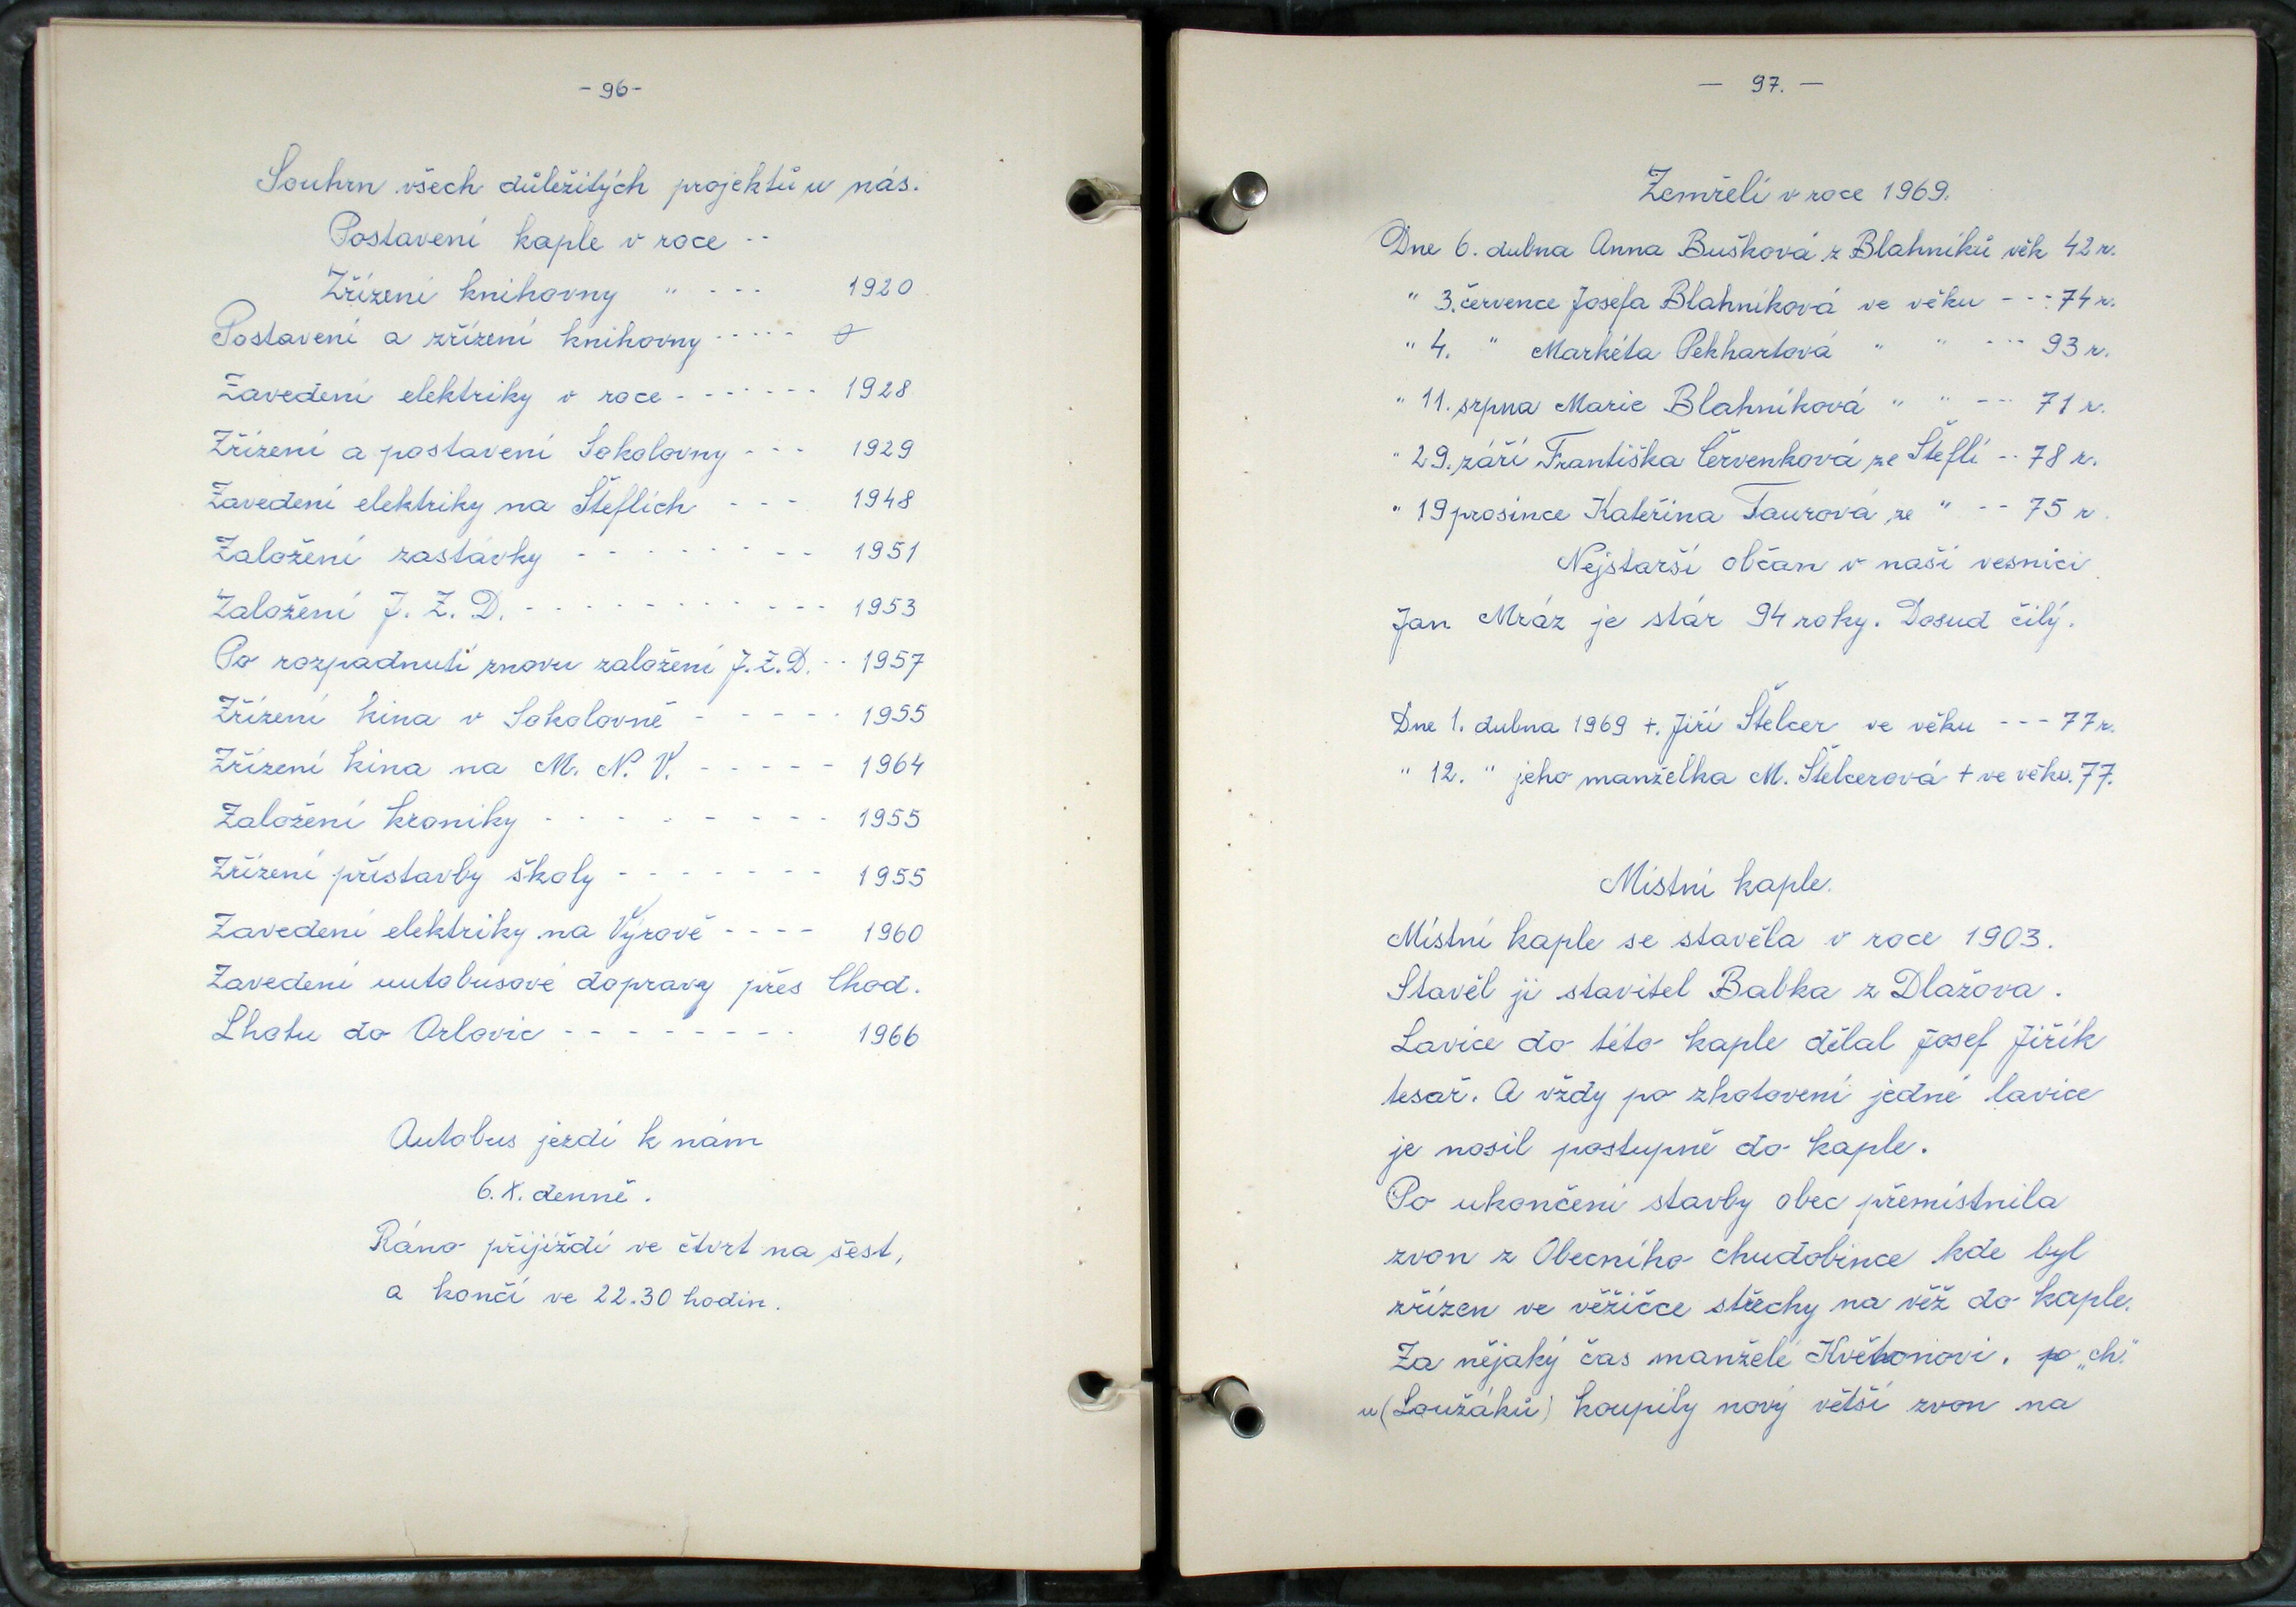 - 96 -
Souhrn všech důležitých projektů u nás.
Postavení kaple v roce --
Zřízení knihovny " - - - 1920
Postavení a zřízení knihovny -----
Zavedení elektriky v roce ------ 1928
Zřízení a postavení Sokolovny --- 1929
Zavedení elektriky na Šteflích --- 1948
Založení zastávky -------- 1951
Založení J. Z. D. ----------- 1953
Po rozpadnutí znovu založení J.Z.D. -- 1957
Zřízení kina v Sokolovně ----- 1955
Zřízení kina na M. N. V. ----- 1964
Založení kroniky --------- 1955
Zřízení přístavby školy ------- 1955
Zavedení elektriky na Výrově ---- 1960
Zavedení uutobusové dopravy přes Chod.
Lhotu do Orlovic -------- 1966
Autobus jezdí k nám
6.X. denně.
Ráno přijíždí ve čtvrt na šest,
a končí ve 22.30 hodin.
— 97. —
Zemřelí v roce 1969.
Dne 6. dubna Anna Bušková z Blahníků věk 42 r.
" 3. července Josefa Blahníková ve věku --- 74 r.
" 4. " Markéta Pekhartová " " --- 93 r.
" 11. srpna Marie Blahníková " " --- 71 r.
" 29. září Františka Červenková ze Šteflí -- 78 r.
" 19 prosince Kateřina Taurová ze " -- 75 r.
Nejstarší občan v naší vesnici
Jan Mráz je stár 94 roky. Dosud čilý.
Dne 1. dubna 1969 +. Jiří Štelcer ve věku --- 77 r.
" 12. " jeho manželka M. Štelcerová + ve věku. 77.
Místní kaple.
Místní kaple se stavěla v roce 1903.
Stavěl ji stavitel Babka z Dlažova.
Lavice do této kaple dělal Josef Jiřík
tesař. A vždy po zhotovení jedné lavice
je nosil postupně do kaple.
Po ukončení stavby obec přemístnila
zvon z Obecního chudobince kde byl
zřízen ve věžičce střechy na věž do kaple.
Za nějaký čas manželé Květonovi. po „ch."
u (Loužáků) koupily nový větší zvon na